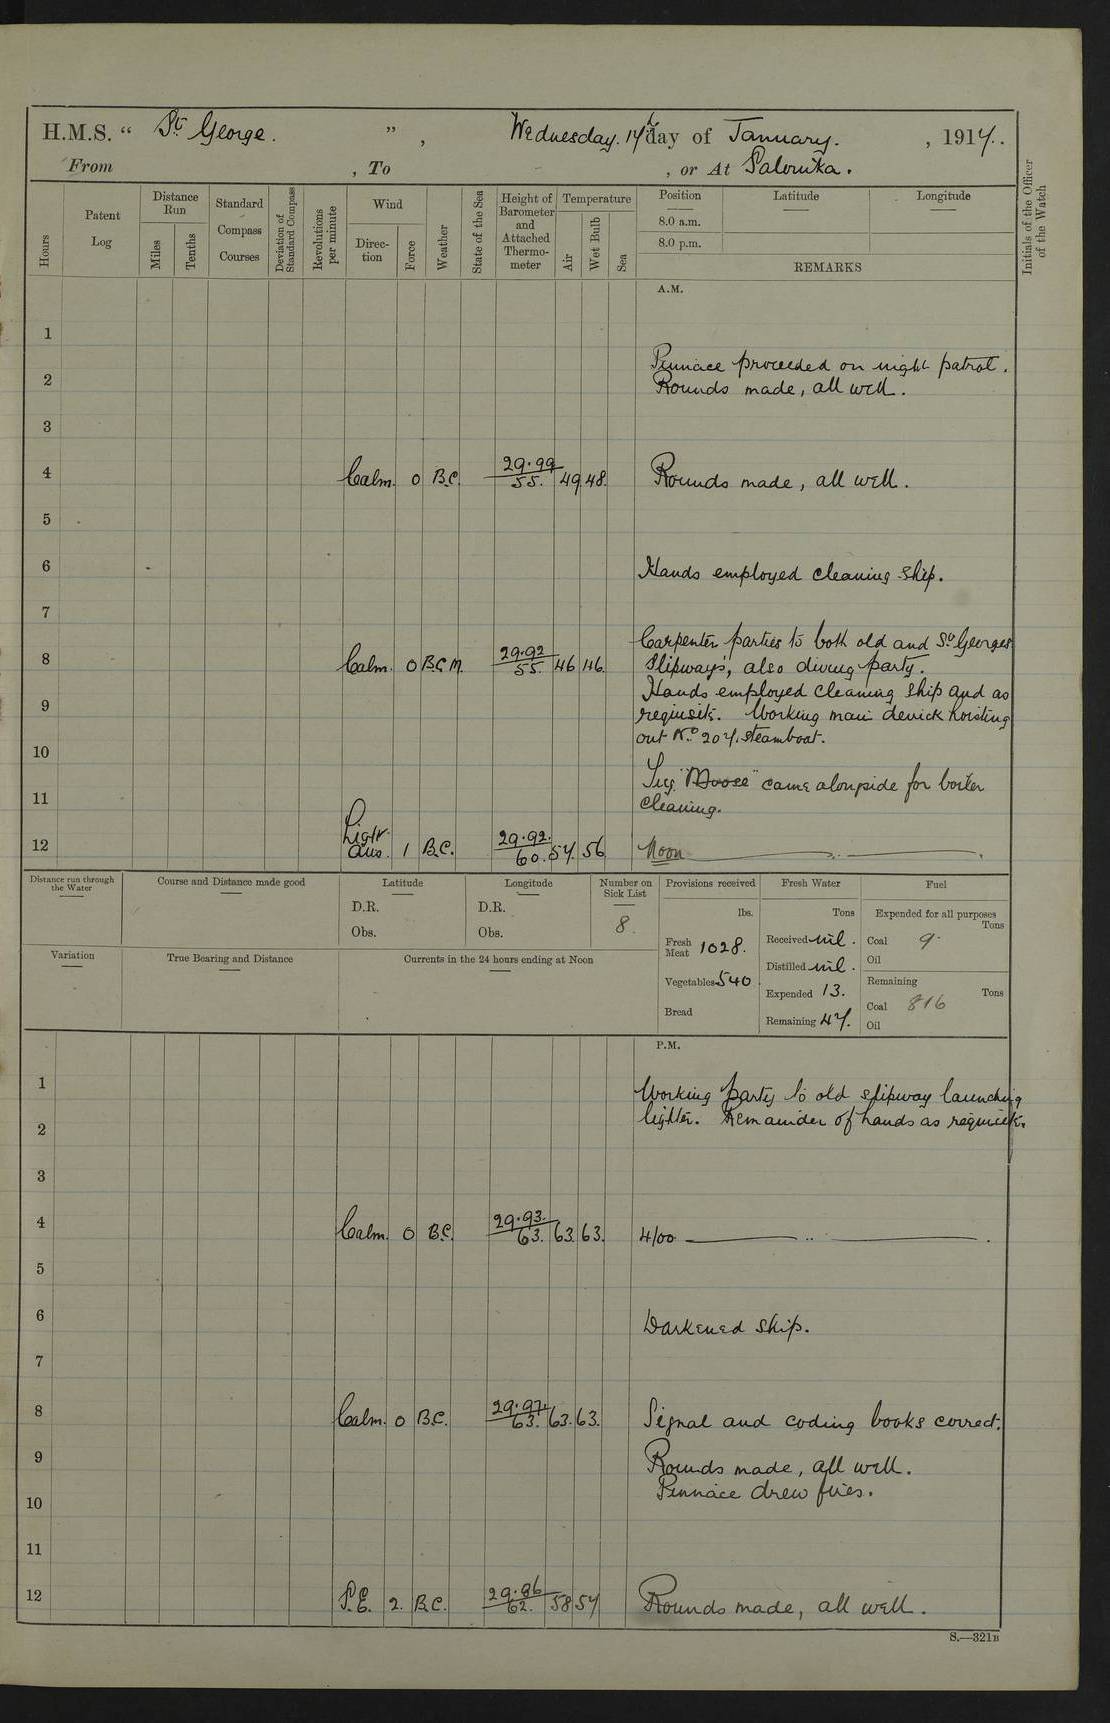 H.M.S. " St. George. ", Wednesday. 17th day of January. , 1917.
From , To , or At Salonika.
Hours
Patent Log
Distance Run
Miles
Tenths
Standard Compass Courses
Deviation of Standard Compass
Revolutions per minute
Wind
Direction
Force
Weather
State of the Sea
Height of Barometer and Attached Thermometer
Temperature
Air
Wet Bulb
Sea
Position
Latitude
Longitude
8.0 a.m.
8.0 p.m.
REMARKS
Initials of the Officer of the Watch
A.M.
1
Pinnace proceeded on night patrol.
2
Rounds made, all well.
3
4 Calm. 0 B.C. 29.99/55. 49 48. Rounds made, all well.
5
6 Hands employed cleaning ship.
7
Carpenter parties to both old and St. Georges
8 Calm. 0 B.C.M. 29.92/55. 46 46. slipways, also diving party.
Hands employed cleaning ship and as
9 requisite. Working main derrick hoisting
out No. 207. steamboat.
10
Tug "Moose" came alongside for boiler
11 cleaning.
12 Light Airs. 1 B.C. 29.92./60. 57. 56 Noon
Distance run through the Water
Course and Distance made good
Latitude
D.R.
Obs.
Longitude
D.R.
Obs.
Number on Sick List
8.
Provisions received
lbs.
Fresh Meat 1028.
Vegetables 540
Bread
Fresh Water
Tons
Received nil.
Distilled nil.
Expended 13.
Remaining 47.
Fuel
Expended for all purposes
Tons
Coal 9.
Oil
Remaining
Tons
Coal 816
Oil
Variation
True Bearing and Distance
Currents in the 24 hours ending at Noon
P.M.
1 Working party to old slipway launching
2 lighter. Remainder of hands as requisite.
3
4 Calm. 0 B.C. 29.93./63. 63. 63. 4/00
5
6 Darkened ship.
7
8 Calm. 0 B.C. 29.97./63. 63. 63. Signal and coding books correct.
9 Rounds made, all well.
10 Pinnace drew fires.
11
12 S.E. 2. B.C. 29.86/62. 58 57 Rounds made, all well.
S.—321B